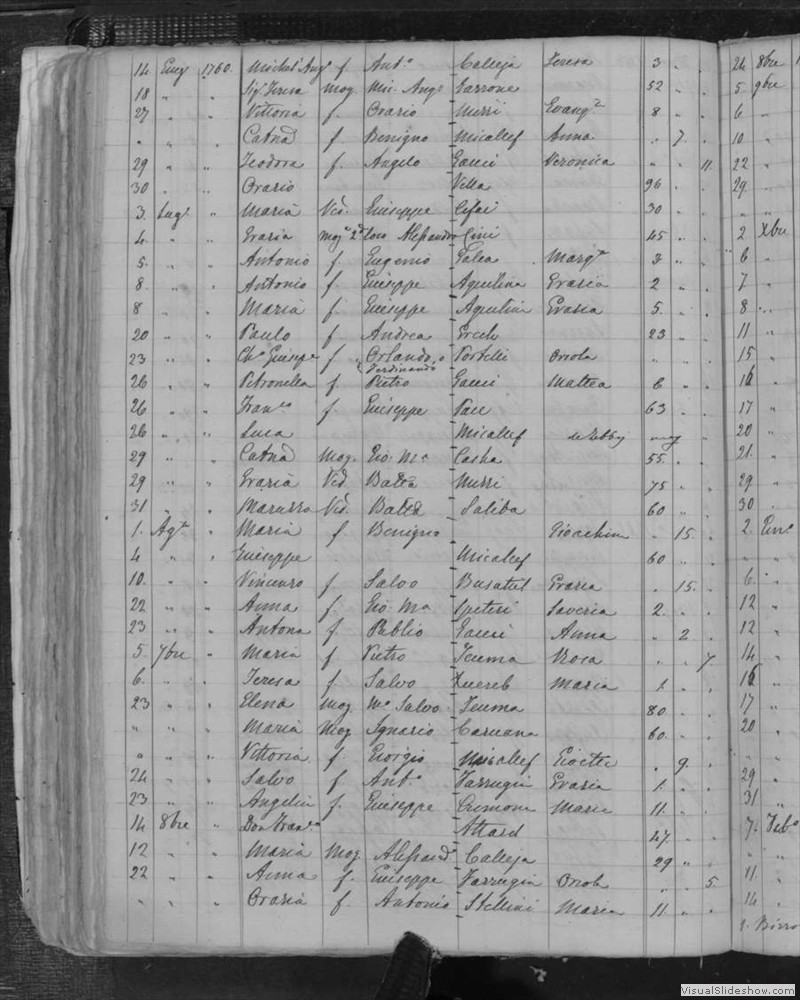 14 Giug 1760. Michel'Ang° f Ant.° Calleja Teresa 3 .
18 " " Sig.ª Teresa mog Mic. Ang° Garrone 52 . .
27 " " Vittoria f. Orazio Muxxi Evang.ª 8 " .
" " " Catna f Benigno Micallef Anna . 7 .
29 " " Teodora f. Angelo Gauci Veronica " . 11.
30 " " Orazio Vella 96 . .
3. Lug° " Maria Ved. Giuseppe Cefai 30 . .
4. " " Grazia mog 2° loco Alessandro Cini 45 . .
5. " " Antonio f. Eugenio Galea Marg.ta " .
8. " " Antonio f. Giuseppe Aquilina Grazia 2 " .
8 " . Maria f. Giuseppe Aquilina Grazia 5. . .
20 " " Paulo f. Andrea Grech 23 . .
23 " . Giusepe f Orlando, o Portelli Oriola " " .
Ferdinando
26 " . Petronella f Pietro Gauci Mattea 6 " .
26 " . Fran.co f. Giuseppe Pace 63 . .
26 . " Luca Micallef
29 " . Catna Mog. Gio. Ma Casha 55. . .
29 " " Grazia Ved Batta Muxxi 75 " .
31 " " Maruzza Ved. Batta Saliba 60 " .
1. Agt° " Maria f Benigno Gioachina . 15. .
4 " . Giuseppe Micallef 60 " .
10. " . Vincenzo f Salvo Busuttil Grazia . 15. .
22 " " Anna f. Gio Ma Spiteri Saveria 2. . .
23 " . Antona f. Publio Gauci Anna . 2 .
5. 7bre " Maria f Pietro Teuma Rosa . . 7
6. " " Teresa f. Salvo Xuereb Maria 1. . .
23 " . Elena Mog Mo Salvo Teuma 80 . .
" " " Maria Mog Ignazio Caruana 60. . .
" " " Vittoria f Giorgio Micallef . 9. .
24 " " Salvo f Ant.° Farrugia Grazia 1. . .
23 " " Angelia f. Giuseppe Cremona Maria 11. . .
14 8bre " Don Fran.co Attard 47. . .
12 " . Maria Mog Alessand.° Calleja 29 " .
22 " . Anna f. Giuseppe Farrugia Oriola " . 5.
" " . Grazia f. Antonio Stellini Maria 11. " .
24 8bre 1
5. 9bre
6 "
10 .
22 "
29 "
" "
2 Xbre
6 "
7 "
8 "
11 "
15 "
16 "
17 "
20 "
21. "
29 "
30 "
2.
" "
6. "
12 "
12 "
14 "
16 "
17 "
20 "
" "
29 "
31 "
7. Feb°
" "
11. "
14 "
VisualSlideshow.com